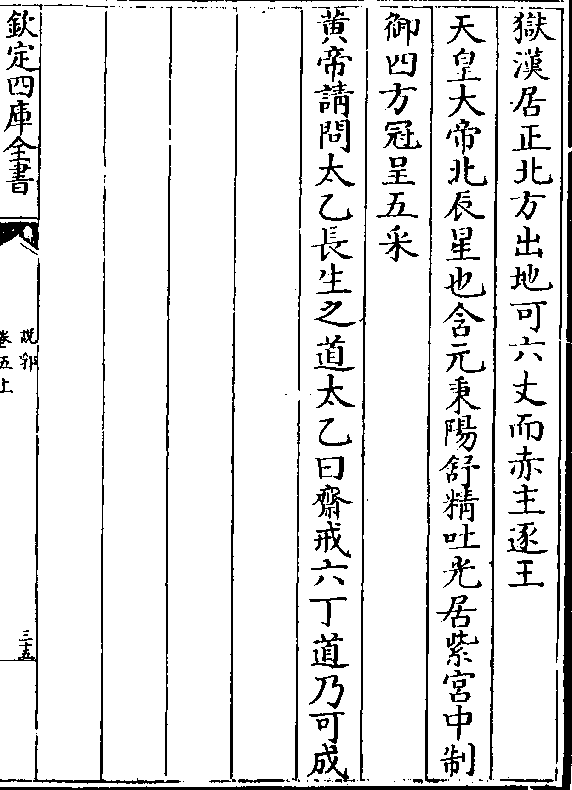 獄漢居正北方出地可六丈而赤主逐王
天皇大帝北辰星也含元秉陽舒精吐光居紫宮中制
御四方冠呈五采
黄帝請問太乙長生之道太乙曰齋戒六丁道乃可成
欽定四庫全書
說郛
卷五上
三十五